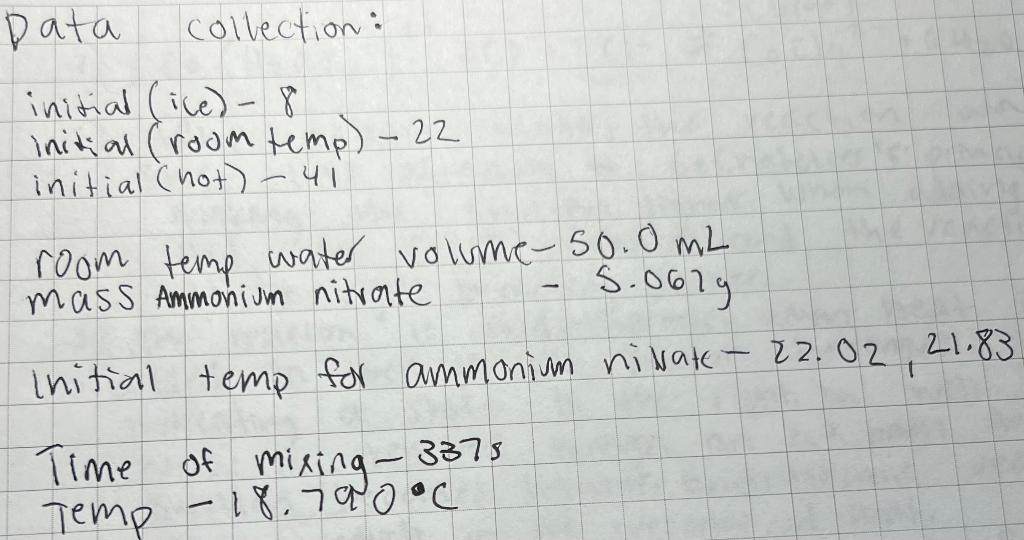 Data collection:
initial (ice) - 8
initial (room temp) - 22
initial (hot) - 41
room temp water volume - 50.0 mL
mass Ammonium nitrate - 5.062g
Initial temp for ammonium nitrate - 22.02, 21.83
Time of mixing - 337s
Temp - 18.790°C